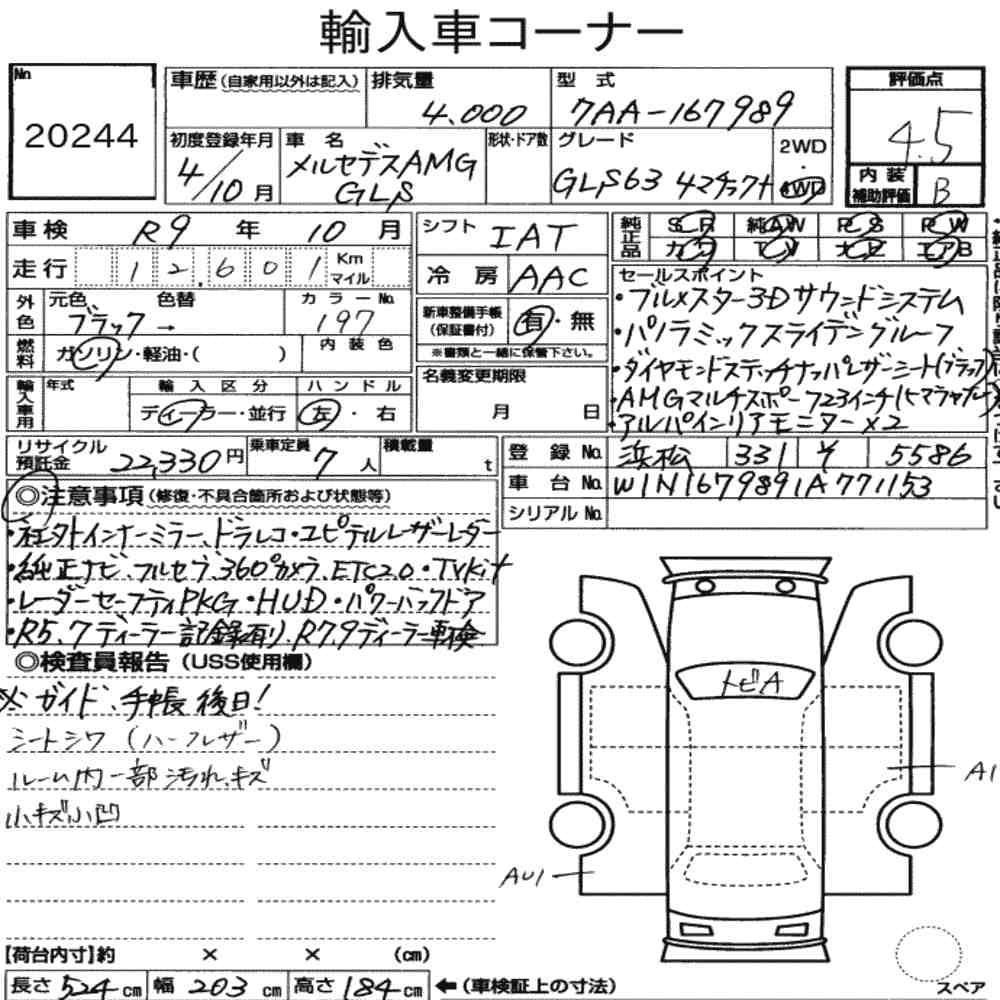 輸入車コーナー
No 20244
車歴 (自家用以外は記入) 排気量 4.000 型式 7AA-167989
評価点 4.5
初度登録年月 4/10月 車名 メルセデスAMG GLS 形状・ドア数 グレード GLS63 4マチック+ 2WD・4WD
内装補助評価 B
車検 R9年 10月
シフト IAT
純正品 SR 純AW PS PW
カワ TV ナビ エアB
走行 12.601 Km マイル
冷房 AAC
外色 元色 ブラック → 色替 カラーNo. 197
新車整備手帳 (保証書付) 有・無
※書類と一緒に保管下さい。
燃料 ガソリン・軽油・( ) 内装色
名義変更期限 月 日
輸入車用 年式 輸入区分 ディーラー・並行 ハンドル 左・右
セールスポイント
・ブルメスター3Dサウンドシステム
・パノラミックスライディングルーフ
・ダイヤモンドステッチナッパレザーシート(ブラック)
・AMGマルチスポーク23インチ
・アルパインリアモニター×2
リサイクル預託金 22,330円 乗車定員 7人 積載量 t
登録No. 浜松 331 5586
車台No. W1N1679891A771153
シリアルNo.
◎注意事項 (修復・不具合箇所および状態等)
・社外インナーミラー、ドラレコ・ユピテルレーザーレーダー
・純正ナビ、フルセグ、360°カメラ、ETC2.0・TVkit
・レーダーセーフティPKG・HUD・パワーバックドア
・R5、7ディーラー記録有り、R7.9ディーラー車検
◎検査員報告 (USS使用欄)
※ガイド、手帳後日!
シートシワ (ハーフレザー)
ルーム内一部汚れ、キズ
小キズ小凹
トビA
A1
AU1
【荷台内寸】約 × × (cm)
長さ 524cm 幅 203cm 高さ 184cm ←(車検証上の寸法)
スペア